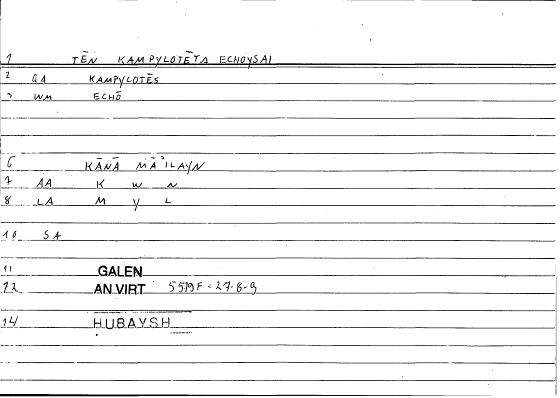 1 TĒN KAMPYLOTĒTA ECHOYSAI
2 QA KAMPYLOTĒS
3 WM ECHŌ
6 KĀNĀ MĀʾILAYN
7 AA K W N
8 LA M Y L
10 SA
11 GALEN
12 AN VIRT
14 HUBAYSH